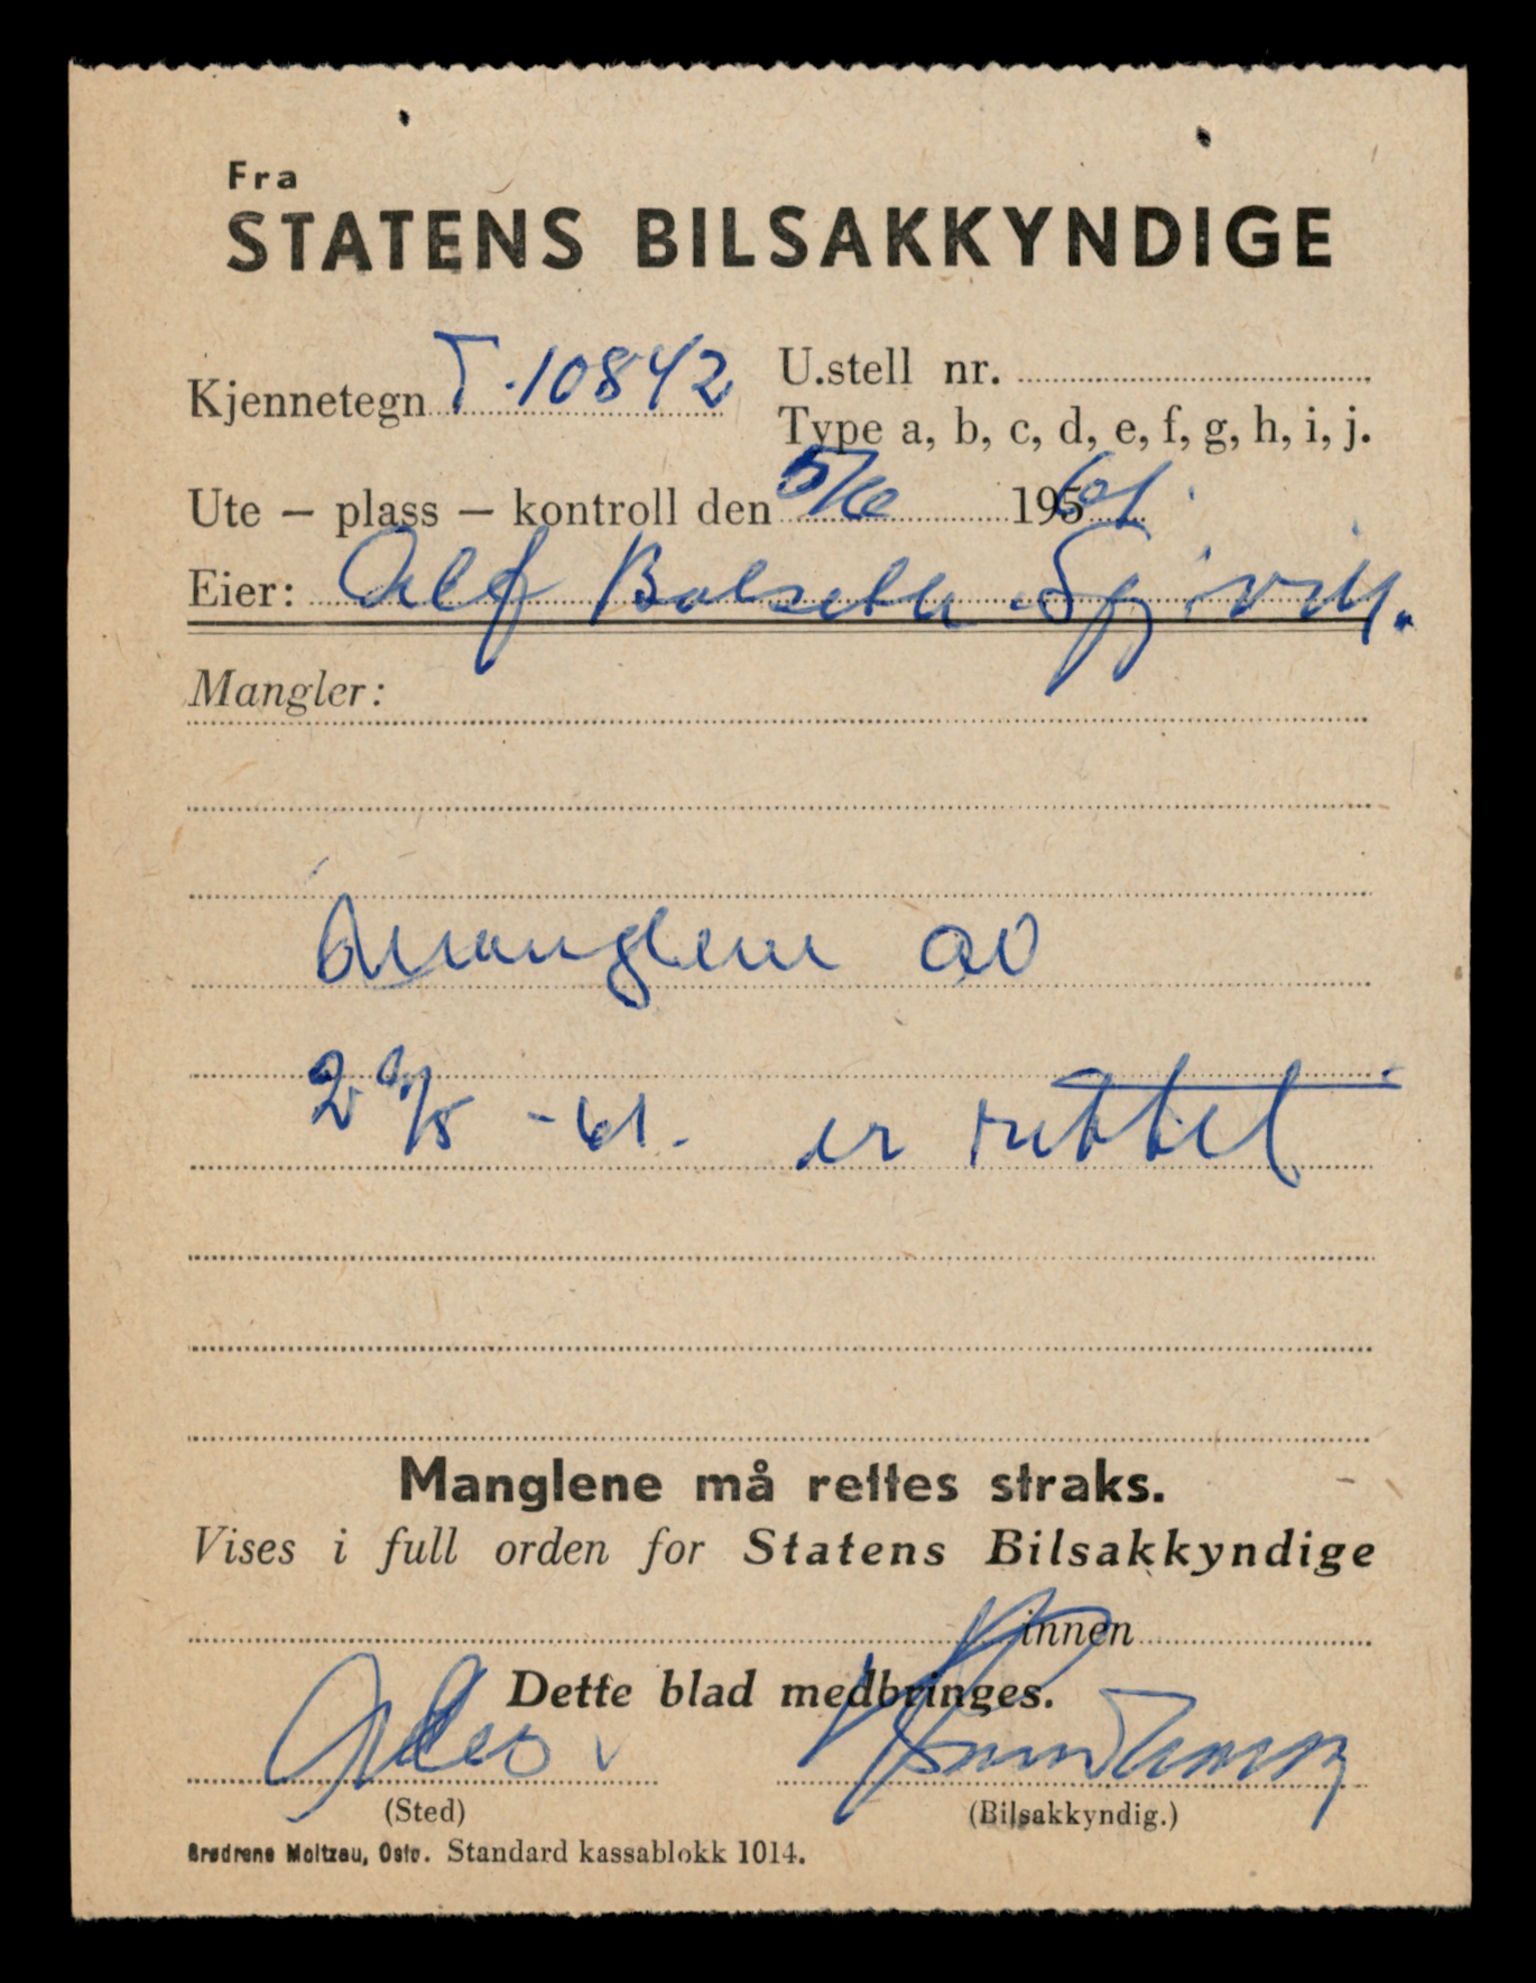 Fra
STATENS BILSAKKYNDIGE
Kjennetegn T-10842
U.stell nr.
Type a, b, c, d, e, f, g, h, i, j.
Ute — plass — kontroll den 5/6 1961.
Eier: Alf
Mangler:
Manglene av
29/5 -61. er rettet
Manglene må rettes straks.
Vises i full orden for Statens Bilsakkyndige
innen
Dette blad medbringes.
(Sted)
(Bilsakkyndig.)
Brødrene Moltzau, Oslo. Standard kassablokk 1014.